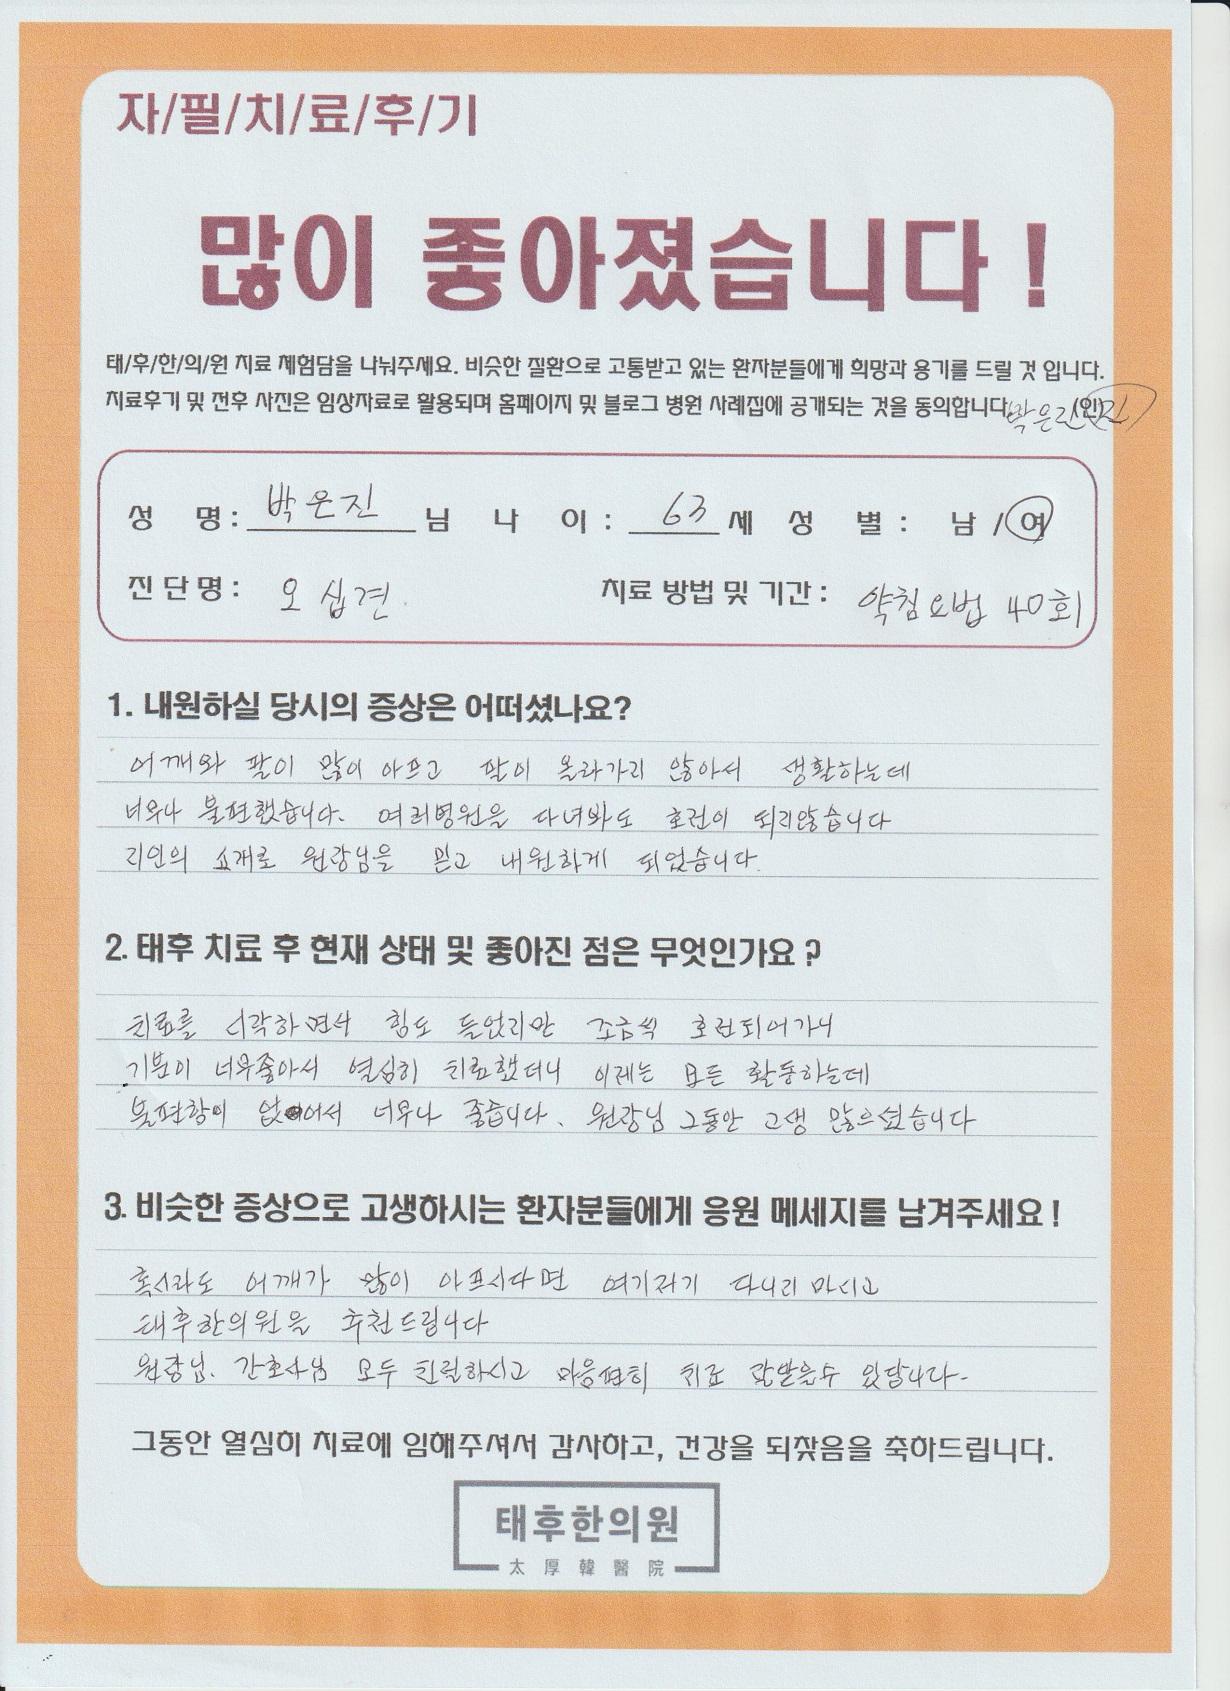 자/필/치/료/후/기
많이 좋아졌습니다!
태/후/한/의/원 치료 체험담을 나눠주세요. 비슷한 질환으로 고통받고 있는 환자분들에게 희망과 용기를 드릴 것 입니다.
치료후기 및 전후 사진은 임상자료로 활용되며 홈페이지 및 블로그 병원 사례집에 공개되는 것을 동의합니다. 박은진 (인)
성 명: 박은진 님 나 이: 63 세 성 별: 남 / 여
진단명: 오십견 치료 방법 및 기간: 약침요법 40회
1. 내원하실 당시의 증상은 어떠셨나요?
어깨와 팔이 많이 아프고 팔이 올라가지 않아서 생활하는데
너무나 불편했습니다. 여러병원을 다녀봐도 호전이 되지않습니다
지인의 소개로 원장님을 믿고 내원하게 되었습니다.
2. 태후 치료 후 현재 상태 및 좋아진 점은 무엇인가요?
치료를 시작하면서 힘도 들었지만 조금씩 호전되어가니
기분이 너무좋아서 열심히 치료했더니 이제는 모든 활동하는데
불편함이 없어서 너무나 좋습니다. 원장님 그동안 고생 많으셨습니다
3. 비슷한 증상으로 고생하시는 환자분들에게 응원 메세지를 남겨주세요!
혹시라도 어깨가 많이 아프시다면 여기저기 다니지 마시고
태후한의원을 추천드립니다
원장님. 간호사님 모두 친절하시고 마음편히 치료 잘받을수 있답니다-
그동안 열심히 치료에 임해주셔서 감사하고, 건강을 되찾음을 축하드립니다.
태후한의원
太厚韓醫院